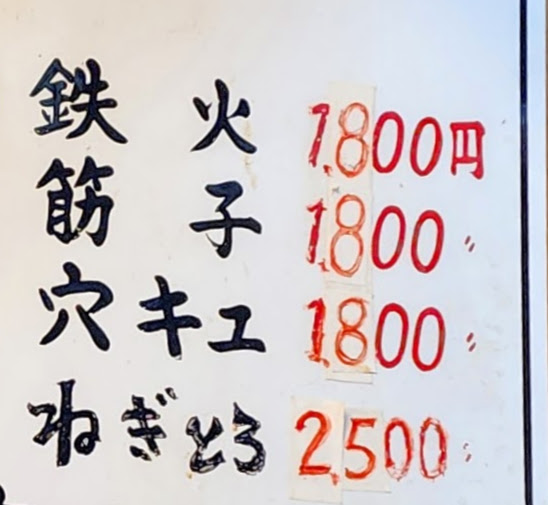 鉄火 1,800円
筋子 1,800 〃
穴キュ 1,800 〃
ねぎとろ 2,500 〃